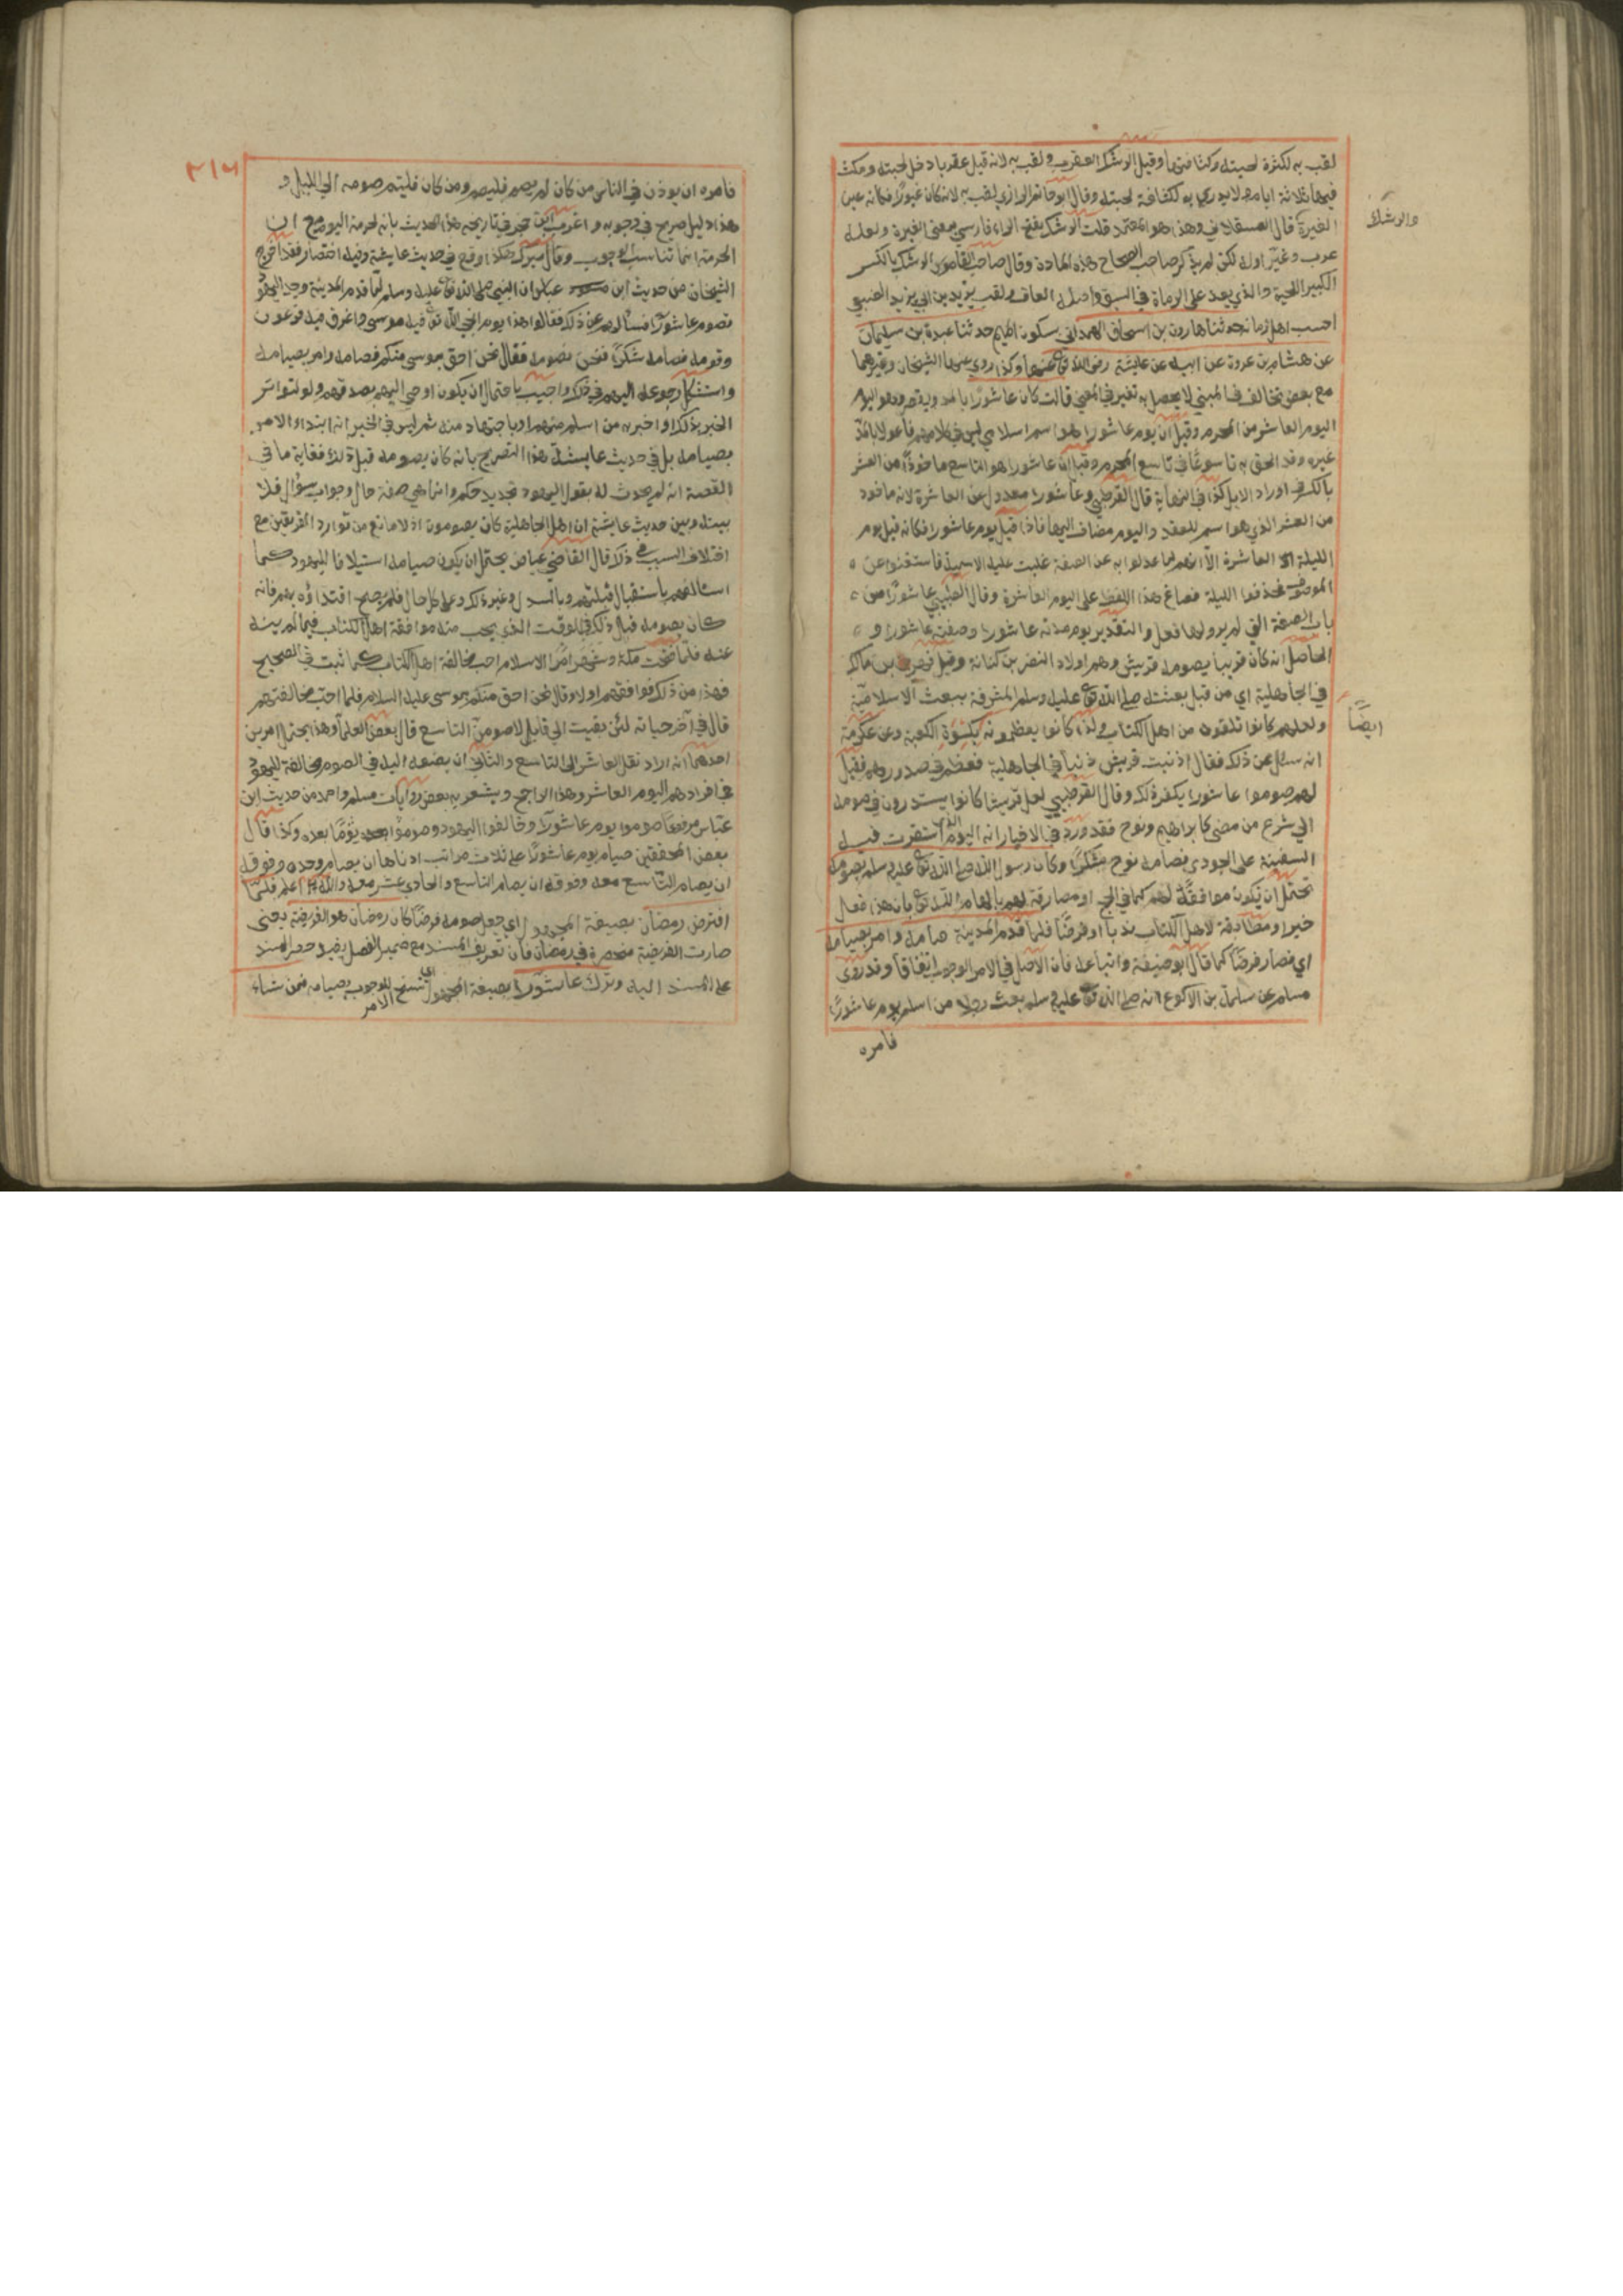 لقب به لكثرة لحيته وكثافتها وقيل الرشك العقرب ولقب به لانه قيل عقربا دخل لحيته ومكث
فيها ثلاثة ايام وهو لا يدري به لكثافة لحيته وقال ابو حاتم الرازي لقب به لانه كان غيورا فكانه عين
والرشك
الغيرة قال العسقلاني وهذا هو المعتمد قلت الرشك بفتح الراء فارسي بمعنى الغيرة ولعله
عرب وغير اوله لكن لم يذكر صاحب الصحاح هذه المادة وقال صاحب القاموس الرشك بالكسر
الكبير اللحية والذي يعد على الرماة في السبق واصله القاف ولقب يزيد بن ابي يزيد الضبعي
احسب اهل زمانه حدثنا هارون بن اسحاق الهمداني سكون الميم حدثنا عبدة بن سليمان
عن هشام بن عروة عن ابيه عن عايشة رضي الله تع عنها وكذا روى عنها الشيخان وغيرهما
مع بعض تخالف في المبني لا يحصل به تغير في المعنى قالت كان عاشورا بالمد ويقصر وهو اليوم
اليوم العاشر من المحرم وقيل ان يوم عاشورا هو اسم اسلامي ليس في كلامهم فاعولا بالمد
غيره وقد الحق به تاسوعا في تاسع المحرم وقيل ان عاشورا هو التاسع ماخوذ من العشر
بالكسر في اوراد الابل كذا في النهاية قال القرطبي وعاشورا معدول عن العاشرة لانه ماخوذ
من العشر الذي هو اسم للعقد واليوم مضاف اليها فاذا قيل يوم عاشورا فكانه قيل يوم
الليلة العاشرة الا انهم لما عدلوا به عن الصفة غلبت عليه الاسمية فاستغنوا عن
الموصوف فحذفوا الليلة فصاغ هذا اللفظ على اليوم العاشرة وقال الطيبي عاشورا من
باب الصفة التي لم يرد لها فعل والتقدير يوم مدته عاشورا وصفته عاشورا و
الحاصل انه كان قريبا يصومه قريش وهم اولاد النضر بن كنانة وقيل فهر بن مالك
في الجاهلية اي من قبل بعثته صلى الله تع عليه وسلم المشرفة ببعث الاسلامية
ايضًا
ولعلهم كانوا تلقوه من اهل الكتاب ولذا كانوا يعظمونه بكسوة الكعبة وعن عكرمة
انه سئل عن ذلك فقال اذنبت قريش ذنبا في الجاهلية فعظم في صدورهم فقيل
لهم صوموا عاشورا يكفر ذلك وقال القرطبي لعل قريشا كانوا يستندون في صومه
الى شرع من مضى كابراهيم ونوح فقد ورد في الاخبار انه اليوم الذي استقرت فيه
السفينة على الجودي فصامه نوح شكرًا وكان رسول الله صلى الله تع عليه وسلم يصومه
تحتمل ان يكون موافقة لهم كما في الحج او مصادقة لهم بالهام الله تع بان هذا فعل
خير او مطابقة لاهل الكتاب ندبا او فرضًا فلما قدم المدينة صامه وامر بصيامه
اي فصار فرضًا كما قال ابو حنيفة واتباعه فان الاصل في الامر الوجوب اتفاقا وقد روى
مسلم عن سلمة بن الاكوع انه صلى الله تع عليه وسلم بعث رجلا من اسلم يوم عاشورا
فامره
٣١٦
فامره ان يوذن في الناس من كان لم يصم فليصم ومن كان فليتم صومه الى الليل و
هذا دليل صريح في وجوبه واغرب ابن حجر في تاريخه هذا الحديث بانه لحرمة اليوم مع ان
الحرمة انما تناسب الوجوب وقال ميرك هكذا وقع في حديث عايشة وفيه اختصار فقد اخرج
الشيخان من حديث ابن عباس ان النبي صلى الله تع عليه وسلم لما قدم المدينة وجد اليهود
تصوم عاشورا فسألهم عن ذلك فقالوا هذا يوم انجى الله تع فيه موسى واغرق فيه فرعون
وقومه فصامه شكرًا فنحن نصومه فقال نحن احق بموسى منكم فصامه وامر بصيامه
واستشكل رجوعه اليهم في ذلك واجيب باحتمال ان يكون اوحي اليه بصدقهم ولو لتواتر
الخبر بذلك او اخبر به من اسلم منهم او باجتهاد منه ثم ليس في الخبر انه ابتداء الامر
بصيامه بل في حديث عايشة هذا التصريح بانه كان يصومه قبل ذلك فغاية ما في
القصة انه لم يحدث له بقول اليهود تجديد حكم وانما هي صفة حال وجواب سؤال فلا
بينه وبين حديث عايشة ان اهل الجاهلية كان يصومون اذ لا مانع من توارد الفريقين مع
اختلاف السبب في ذلك قال القاضي عياض يحتمل ان يكون صيامه استيلافا لليهود كما
استالفهم باستقبال قبلتهم وبالسدل وغير ذلك وعلى كل حال فلم يصح اقتداؤه بهم فانه
كان يصومه قبل ذلك في الوقت الذي يحب منه موافقة اهل الكتاب فيما لم ينه
عنه فلما فتحت مكة وشهر امر الاسلام احب مخالفة اهل الكتاب كما ثبت في الصحيح
فهذا من ذلك فوافقهم اولا وقال نحن احق منكم بموسى عليه السلام فلما احب مخالفتهم
قال في آخر حياته لئن بقيت الى قابل لاصومن التاسع قال بعض العلما وهذا يحتمل امرين
احدهما انه اراد نقل العاشر الى التاسع والثاني ان يضيفه اليه في الصوم مخالفة لليهود
في افرادهم اليوم العاشر وهذا الراجح ويشعر به بعض روايات مسلم واحمد من حديث ابن
عباس مرفوعا صوموا يوم عاشورا وخالفوا اليهود وصوموا يوما بعده وكذا قال
بعض المحققين صيام يوم عاشورا على ثلاث مراتب ادناها ان يصام وحده وفوقه
ان يصام التاسع معه وفوقه ان يصام التاسع والحادي عشر معه والله اعلم فلما
افترض رمضان بصيغة المجهول اي جعل صومه فرضًا كان رمضان هو الفريضة يعني
صارت الفريضة منحصرة في رمضان فان تعريف المسند مع ضمير الفصل يفيد حصر المسند
على المسند اليه وترك عاشورا بصيغة المجهول اي نسخ الامر للوجوب بصيامه فمن شاء